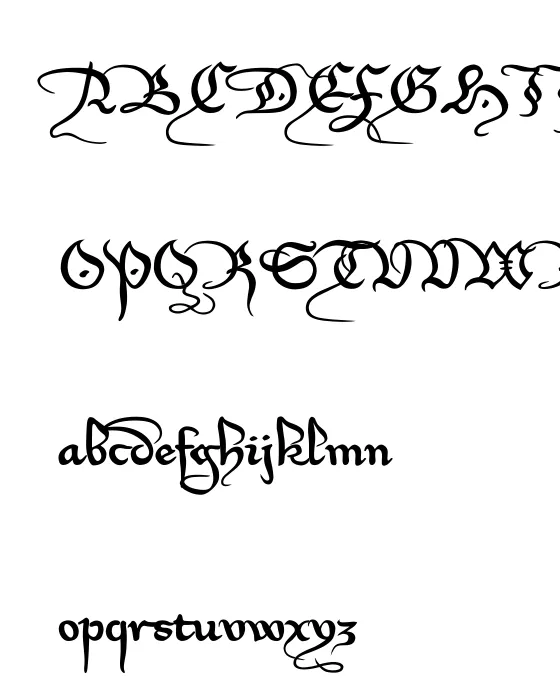 ABCDEFGHI
OPQRSTUVWX
abcdefghijklmn
opqrstuvwxyz